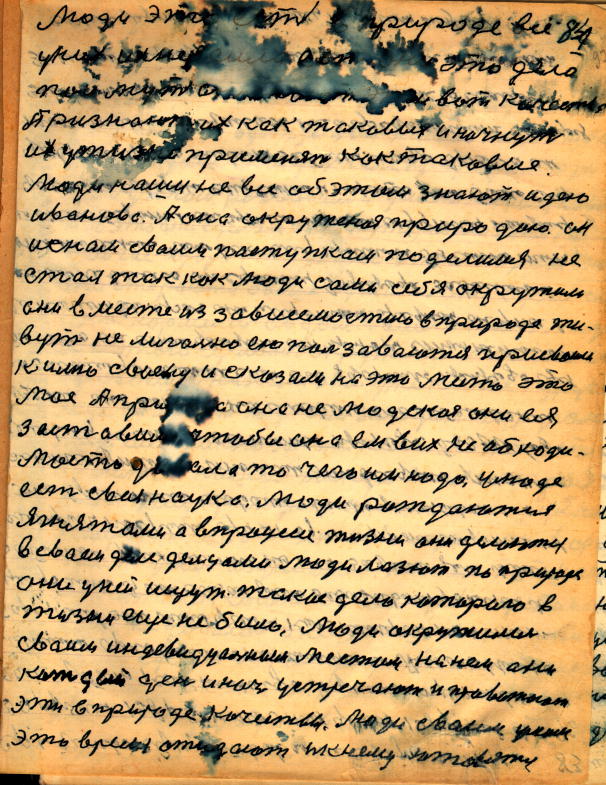 Люди это есть в природе все 84
у них это дело
вот качества
Признают их как таковых и начнут
их у жизни применят как таковые.
Люди наши не все об этом знают идею
иванова. А она окружоная природою. он
и снам своим паступкам поделился не
стал так как люди сами себя окружили
они вместе из зависемостию в природе жи-
вуть не легально ею ползаваются присвоили
к имю своему и сказали на это место это
мое А при а она не людская они ея
заставили чтобы она Ем в их не абходи-
мость д ала то чего им надо. У люде
ест своя наука. Люди рождаются
ягнятами а в процесе жизни они делоются
в своем деле делцами люди лазют по природе
они у ней ищут такое дело которого в
жизни еще не было, Люди окружились
своим индевидуалным местом на нем они
каждый ден и ноч устречают и проважают
эти в природе качества. Люди своим умом
это время ожидают и к нему готовятся